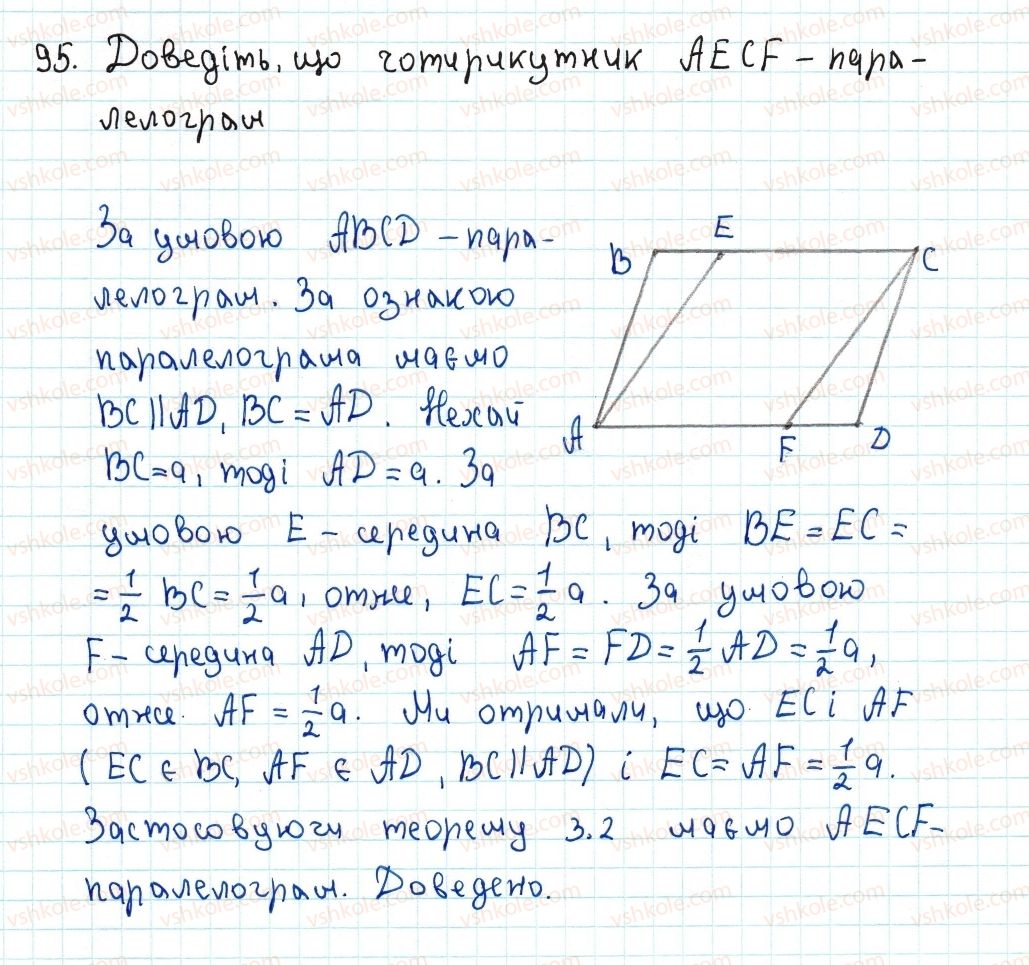 95. Доведіть, що чотирикутник AECF – пара-
лелограм
За умовою ABCD – пара-
лелограм. За ознакою
паралелограма маємо
BC || AD, BC = AD. Нехай
BC = a, тоді AD = a. За
умовою E – середина BC, тоді BE = EC =
= 1/2 BC = 1/2 a, отже, EC = 1/2 a. За умовою
F – середина AD, тоді AF = FD = 1/2 AD = 1/2 a,
отже AF = 1/2 a. Ми отримали, що EC і AF
(EC є BC, AF є AD, BC || AD) і EC = AF = 1/2 a.
Застосовуючи теорему 3.2 маємо AECF –
паралелограм. Доведено.
B E C
A F D
vshkole.com